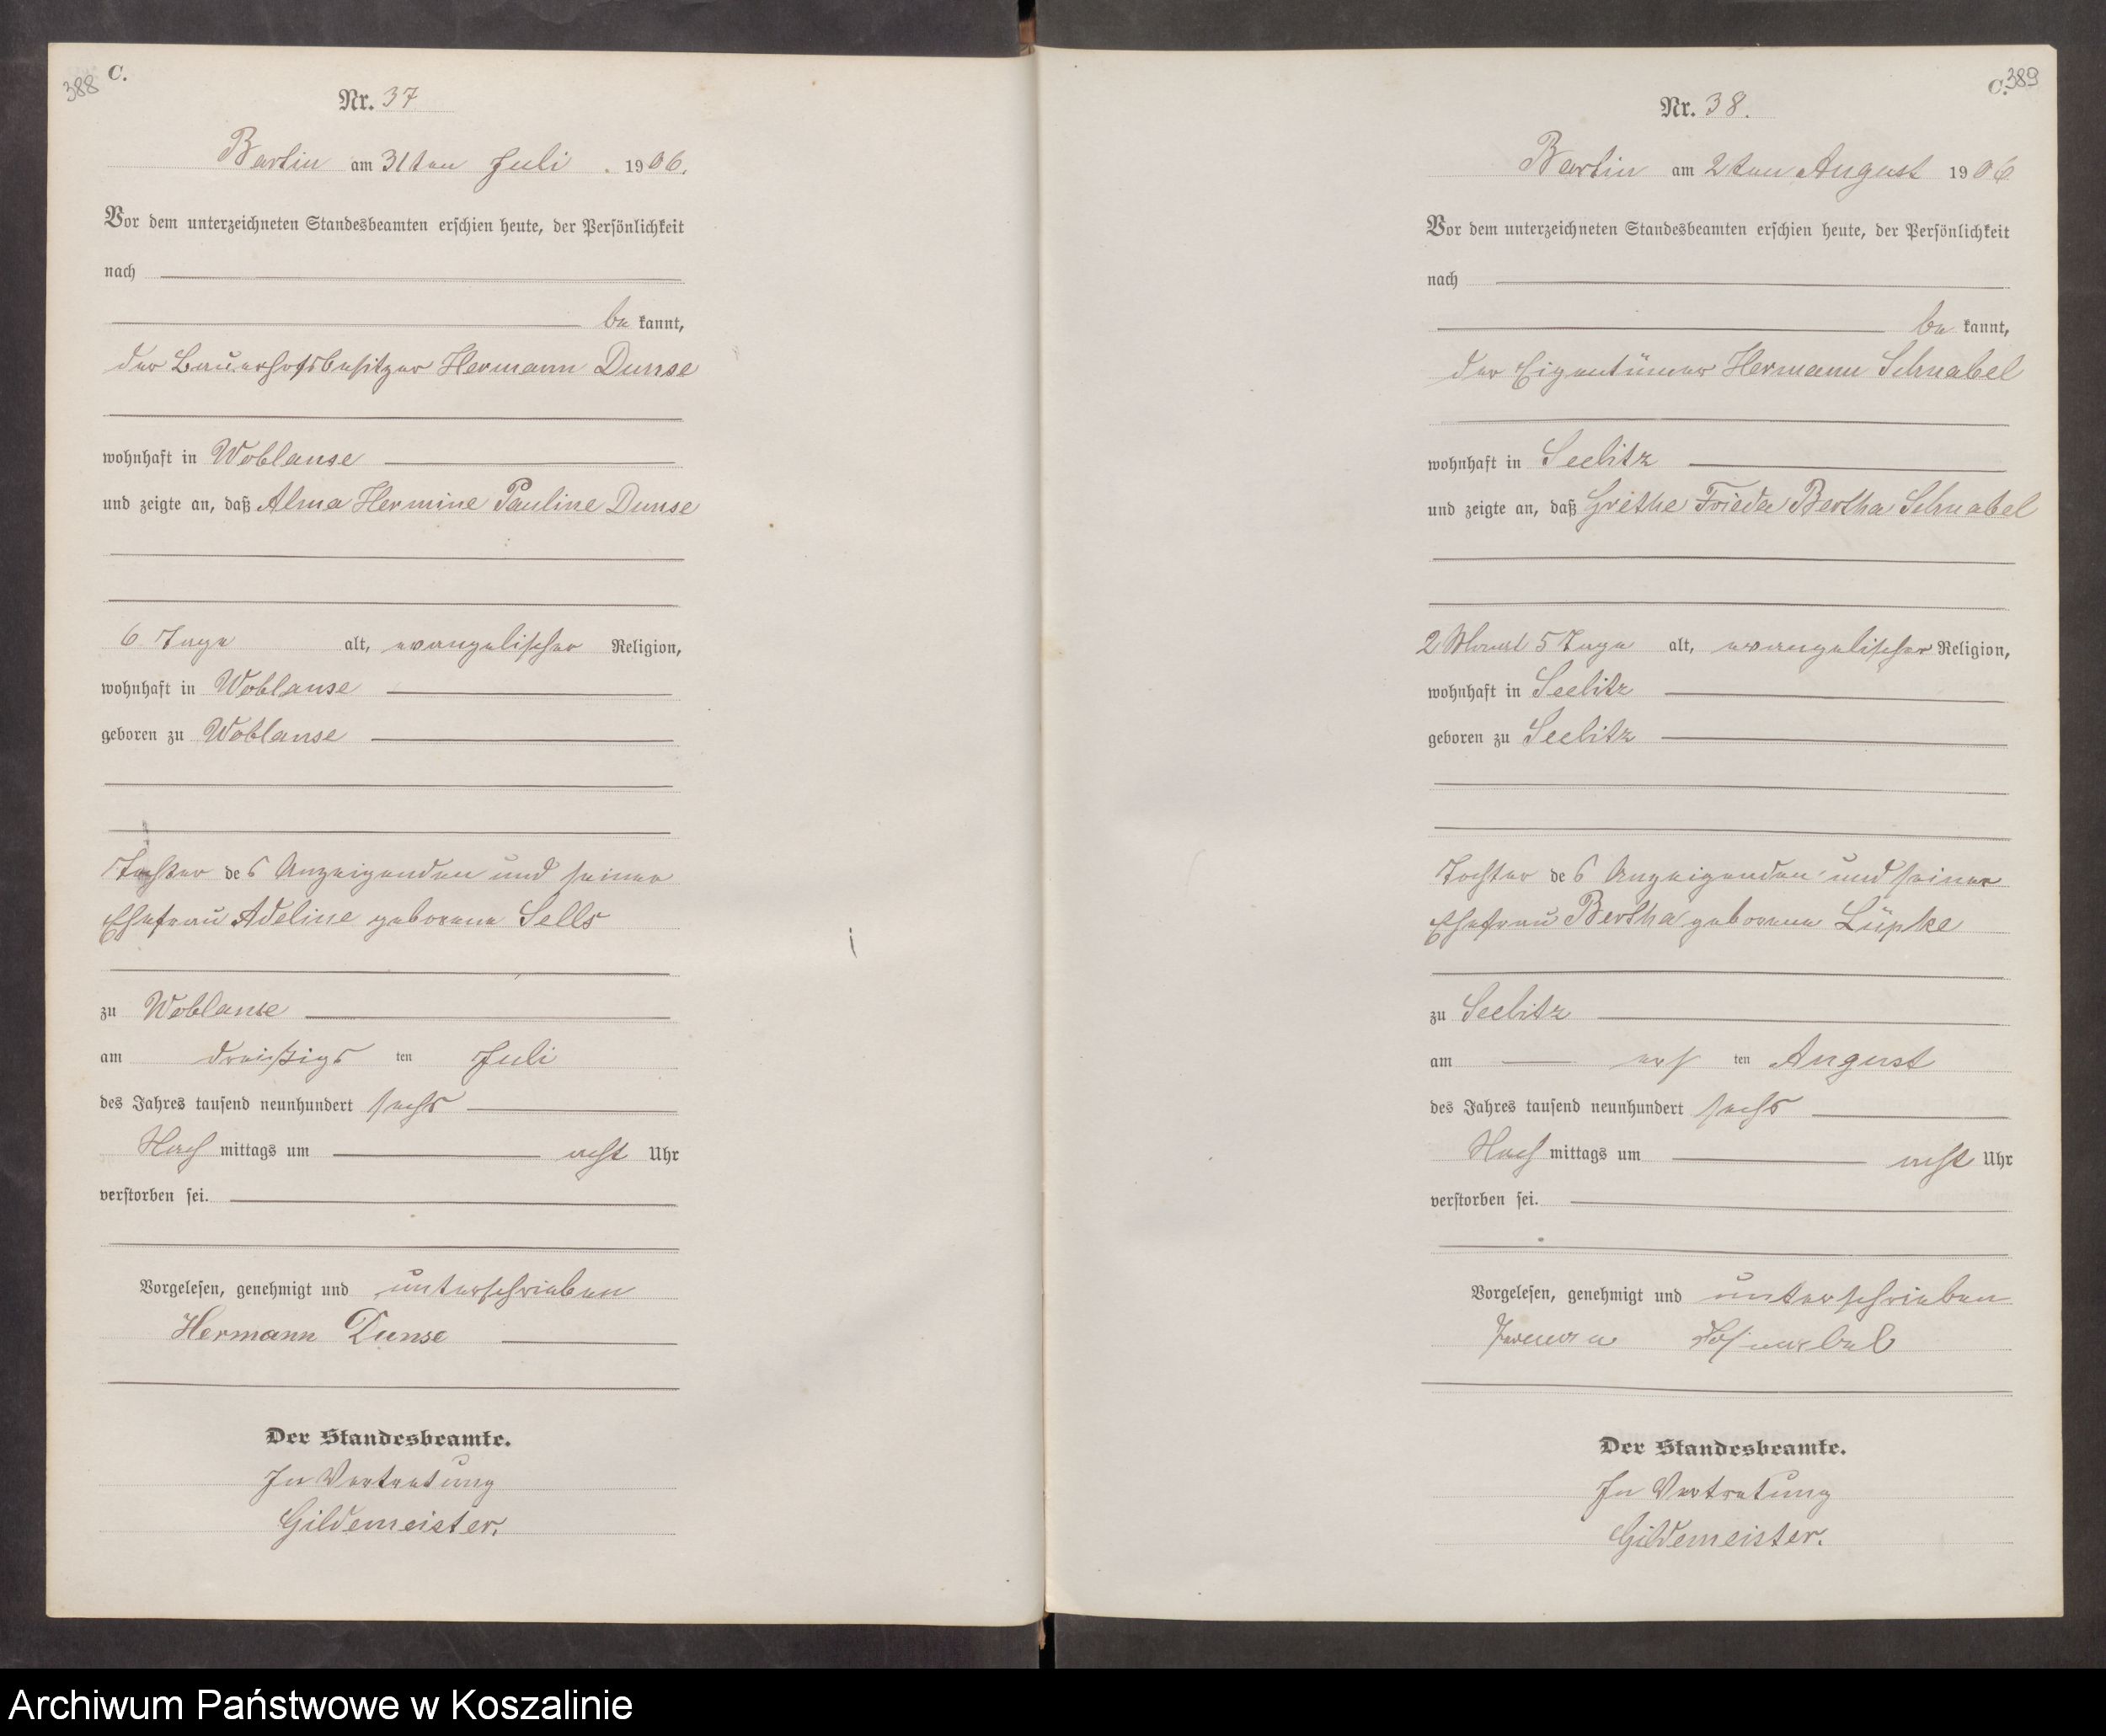 388 C.
Nr. 37
Bartin am 31ten Juli 1906.
Vor dem unterzeichneten Standesbeamten erschien heute, der Persönlichkeit
nach
be kannt,
der Bauerhofsbesitzer Hermann Dunse
wohnhaft in Woblanse
und zeigte an, daß Alma Hermine Pauline Dunse
6 Tage alt, evangelischer Religion,
wohnhaft in Woblanse
geboren zu Woblanse
Tochter des Anzeigenden und seiner
Ehefrau Adeline geborene Sells
zu Woblanse
am dreißigs ten Juli
des Jahres tausend neunhundert sechs
Nach mittags um acht Uhr
verstorben sei.
Vorgelesen, genehmigt und unterschrieben
Hermann Dunse
Der Standesbeamte.
In Vertretung
Gildemeister.
C. 389
Nr. 38.
Bartin am 2ten August 1906
Vor dem unterzeichneten Standesbeamten erschien heute, der Persönlichkeit
nach
be kannt,
der Eigentümer Hermann Schnabel
wohnhaft in Seelitz
und zeigte an, daß Grethe Frieda Bertha Schnabel
2 Monat 5 Tage alt, evangelischer Religion,
wohnhaft in Seelitz
geboren zu Seelitz
Tochter des Anzeigenden und seiner
Ehefrau Bertha geborene Lüpke
zu Seelitz
am ers ten August
des Jahres tausend neunhundert sechs
Nach mittags um acht Uhr
verstorben sei.
Vorgelesen, genehmigt und unterschrieben
Herman Schnabel
Der Standesbeamte.
In Vertretung
Gildemeister.
Archiwum Państwowe w Koszalinie